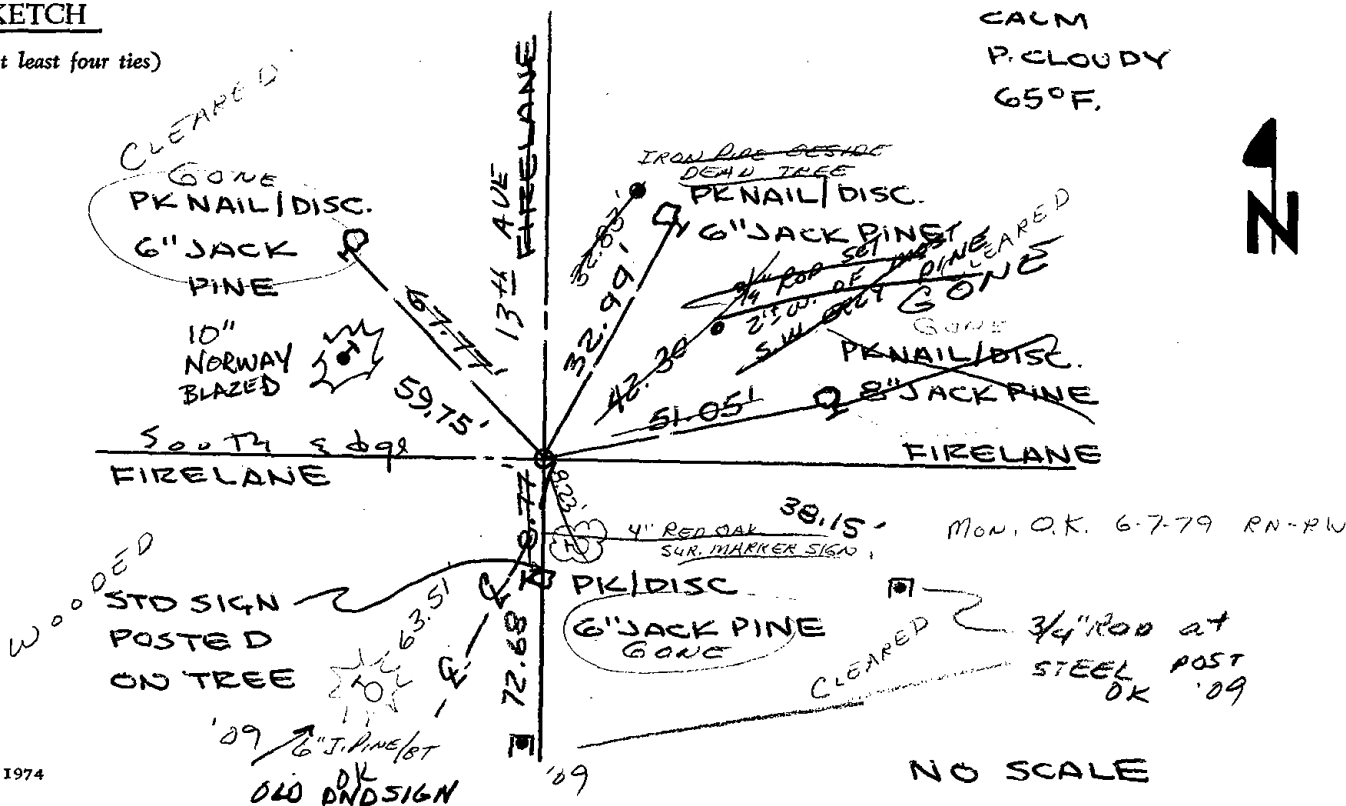 KETCH
t least four ties)
CALM
P. CLOUDY
65°F.
N
CLEARED
GONE
PK NAIL/DISC.
6" JACK
PINE
67.77'
10"
NORWAY
BLAZED
59.75'
13th AVE
FIRELANE
IRON PIPE BESIDE
DEAD TREE
32.83'
PK NAIL/DISC.
6" JACK PINE
32.99'
3/4" ROD SET
2' W. OF
PINE
CLEARED
GONE
42.30
GONE
PK NAIL/DISC.
8" JACK PINE
51.05'
South Edge
FIRELANE
FIRELANE
8.77'
8.23'
4" RED OAK
SUR. MARKER SIGN,
38.15'
MON. O.K. 6-7-79 RN-RW
WOODED
STD SIGN
POSTED
ON TREE
63.51'
72.68
PK/DISC
6" JACK PINE
GONE
CLEARED
3/4" ROD at
STEEL POST
OK '09
'09
6" J. PINE/BT
OK
OLD DND SIGN
'09
1974
NO SCALE